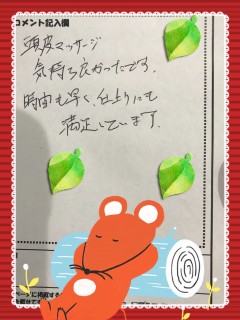 コメント記入欄
頭皮マッサージ
気持ち良かったです。
時間も早く、仕上りにも
満足しています。